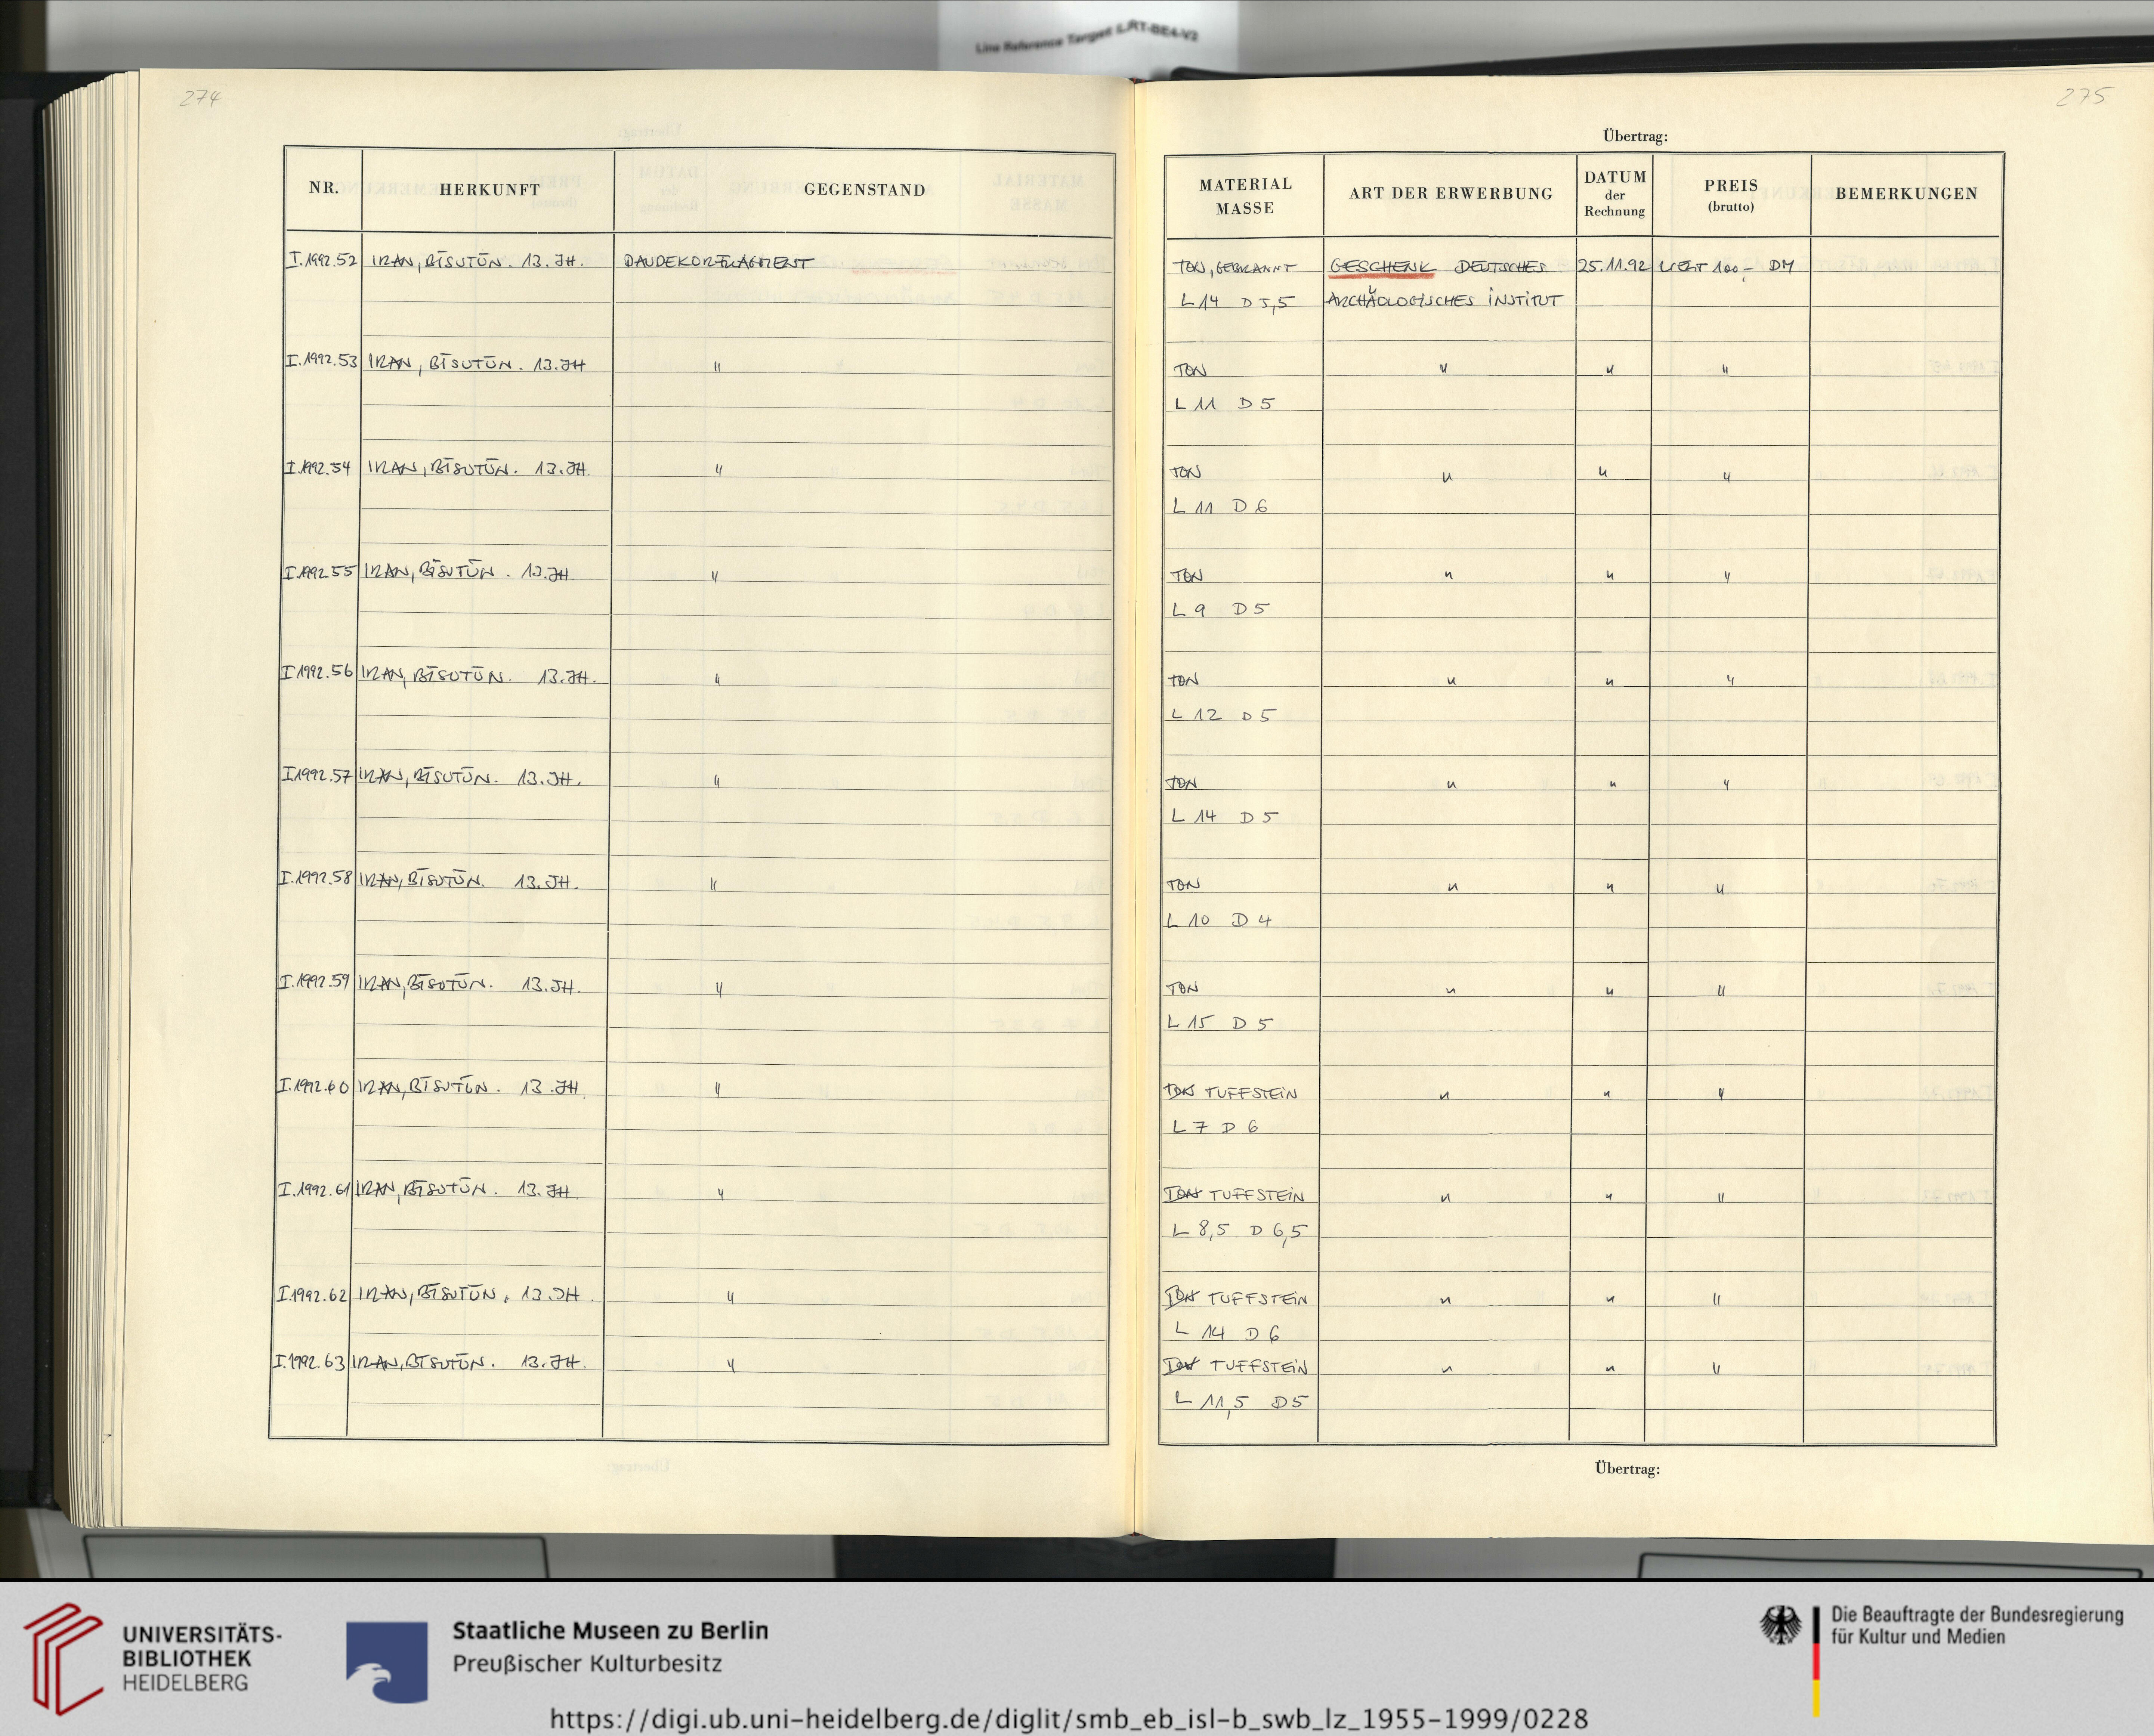 Line Reference Target LRT-BE4-V2
274
275
Übertrag:
NR. HERKUNFT GEGENSTAND MATERIAL MASSE ART DER ERWERBUNG DATUM der Rechnung PREIS (brutto) BEMERKUNGEN
I.1992.52 IRAN, BĪSUTŪN. 13. JH. BAUDEKORFRAGMENT TON, GEBRANNT GESCHENK DEUTSCHES 25.11.92 WERT 100,- DM
L 14 D 5,5 ARCHÄOLOGISCHES INSTITUT
I.1992.53 IRAN, BĪSUTŪN. 13. JH " TON " " "
L 11 D 5
I.1992.54 IRAN, BĪSUTŪN. 13. JH. " TON " " "
L 11 D 6
I.1992.55 IRAN, BĪSUTŪN. 13. JH. " TON " " "
L 9 D 5
I.1992.56 IRAN, BĪSUTŪN. 13. JH. " TON " " "
L 12 D 5
I.1992.57 IRAN, BĪSUTŪN. 13. JH. " TON " " "
L 14 D 5
I.1992.58 IRAN, BĪSUTŪN. 13. JH. " TON " " "
L 10 D 4
I.1992.59 IRAN, BĪSUTŪN. 13. JH. " TON " " "
L 15 D 5
I.1992.60 IRAN, BĪSUTŪN. 13. JH. " TON TUFFSTEIN " " "
L 7 D 6
I.1992.61 IRAN, BĪSUTŪN. 13. JH. " TON TUFFSTEIN " " "
L 8,5 D 6,5
I.1992.62 IRAN, BĪSUTŪN. 13. JH. " TON TUFFSTEIN " " "
L 14 D 6
I.1992.63 IRAN, BĪSUTŪN. 13. JH. " TON TUFFSTEIN " " "
L 11,5 D 5
Übertrag:
UNIVERSITÄTS-
BIBLIOTHEK
HEIDELBERG
Staatliche Museen zu Berlin
Preußischer Kulturbesitz
Die Beauftragte der Bundesregierung
für Kultur und Medien
https://digi.ub.uni-heidelberg.de/diglit/smb_eb_isl-b_swb_lz_1955-1999/0228